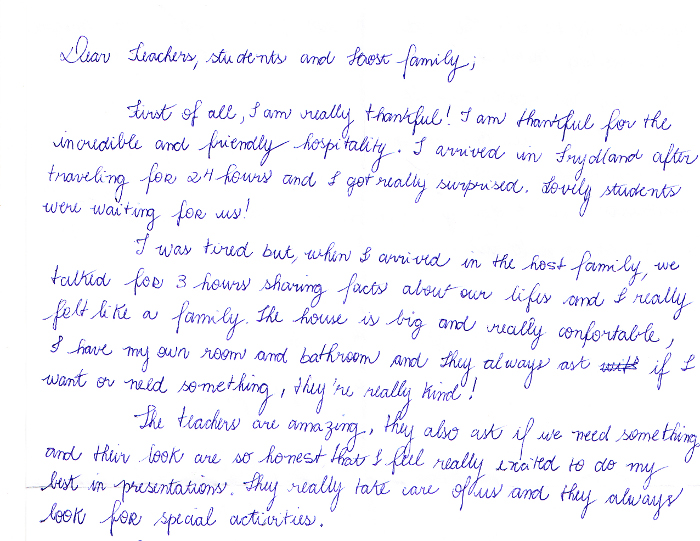 Dear Teachers, students and host family;
First of all, I am really thankful! I am thankful for the
incredible and friendly hospitality. I arrived in Frydland after
traveling for 24 hours and I got really surprised. Lovely students
were waiting for us!
I was tired but, when I arrived in the host family, we
talked for 3 hours sharing facts about our lifes and I really
felt like a family. The house is big and really confortable,
I have my own room and bathroom and they always ask if I
want or need something, they're really kind!
The teachers are amazing, they also ask if we need something
and their look are so honest that I feel really excited to do my
best in presentations. They really take care of us and they always
look for special activities.